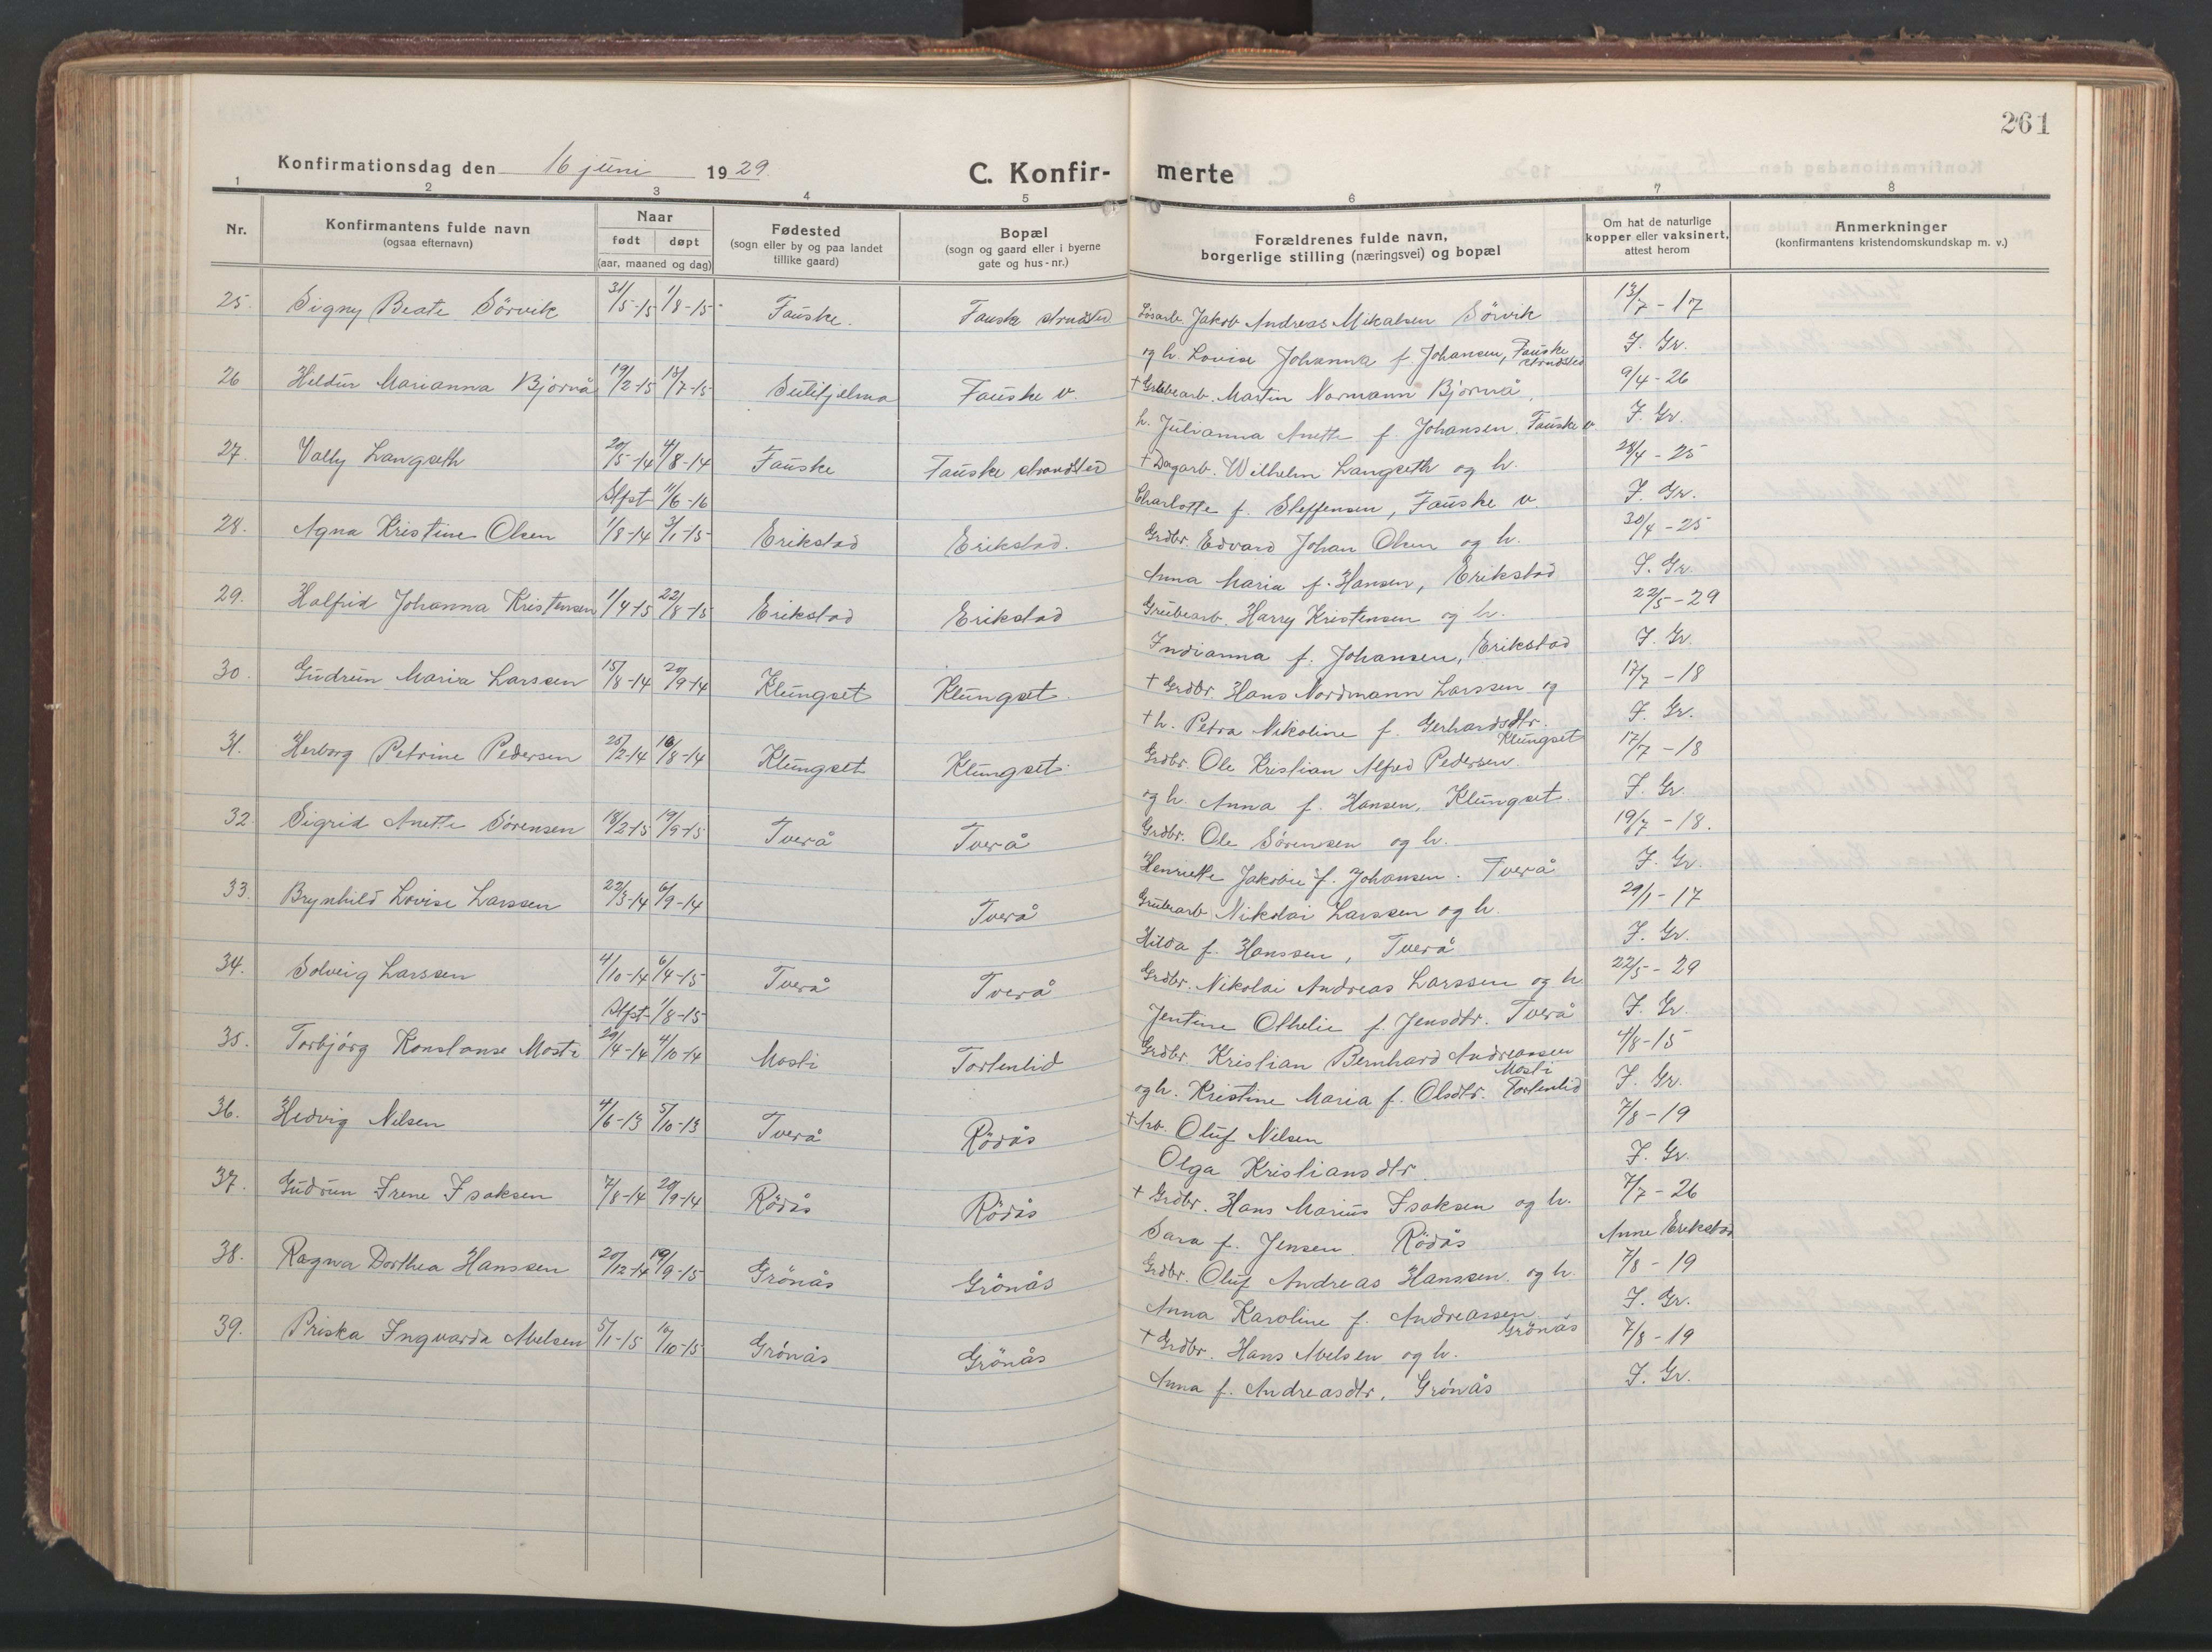 261
Konfirmationsdag den 16 juni 1929.
C. Konfirmerte
1 2 3 4 5 6 7 8
Nr.
Konfirmantens fulde navn
(ogsaa efternavn)
Naar
født døpt
(aar, maaned og dag)
Fødested
(sogn eller by og paa landet
tillike gaard)
Bopæl
(sogn og gaard eller i byerne
gate og hus-nr.)
Forældrenes fulde navn,
borgerlige stilling (næringsvei) og bopæl
Om hat de naturlige
kopper eller vaksinert,
attest herom
Anmerkninger
(konfirmantens kristendomskundskap m. v.)
25. Signy Beate Sörvik 31/5-15 1/8-15 Fauske. Fauske strandsted Lösarb. Jakob Andreas Mikalsen Sörvik 13/7-17
og h. Lovise Johanna f. Johansen, Fauske strandsted J. Gr.
26 Hildur Marianna Bjørnå 19/2-15 15/7-15 Sulitjelma Fauske v. + Grubearb. Martin Normann Bjørnå, 9/4-26
h. Julianna Anette f. Johansen. Fauske v. J. Gr.
27. Vally Langseth 20/5-14 4/8-14 Fauske Fauske strandsted + Dagarb. Wilhelm Langseth og h. 28/4-25
Stfst 11/6-16 Charlotte f. Steffensen, Fauske v. J. Gr.
28. Agna Kristine Olsen 1/8-14 3/1-15 Erikstad Erikstad. Grdbr. Edvard Johan Olsen og h. 30/4-25
Anna Maria f. Hansen, Erikstad J. Gr.
29. Halfrid Johanna Kristensen 1/4-15 22/8-15 Erikstad Erikstad Grubearb. Harry Kristensen og h. 22/5-29
Indianna f. Johansen, Erikstad J. Gr.
30. Gudrun Maria Larssen 15/8-14 20/9-14 Klungset Klungset. + Grdbr. Hans Nordmann Larssen og 17/7-18
+ h. Petra Nikoline f. Gerhardsdtr. Klungset J. Gr.
31. Herborg Petrine Pedersen 25/2-14 16/8-14 Klungset Klungset. Grdbr. Ole Kristian Alfred Pedersen. 17/7-18
og h. Anna f. Hansen, Klungset. J. Gr.
32. Sigrid Anette Sörensen 18/2-15 19/9-15 Tverå Tverå Grdbr. Ole Sörensen og h. 19/7-18.
Henriette Jakobie f. Johansen. Tverå J. Gr.
33. Brynhild Lovise Larssen 22/3-14 6/9-14 Tverå Grubearb. Nikolai Larssen og h. 29/1-17
Hilda f. Hanssen, Tverå J. Gr.
34. Solveig Larssen 4/10-14 6/4-15 Tverå Tverå Grdbr. Nikolai Andreas Larssen og h 22/5-29
Stfst 1/8-15 Jentine Othelie f. Jensdtr. Tverå J. Gr.
35. Torbjørg Konstanse Mosti 29/4-14 4/10-14 Mosti Tortenlid Grdbr. Kristian Bernhard Andreassen Mosti 4/8-15
og h. Kristine Maria f. Olsdtr. Tortenlid J. Gr.
36. Hedvig Nilsen 4/6-13 5/10-13 Tverå Rödås + Arb. Oluf Nilsen 7/8-19
Olga Kristiansdtr. J. Gr.
37. Gudrun Irene Isaksen 7/8-14 20/9-14 Rödås Rödås + Grdbr. Hans Marius Isaksen og h. 7/7-26
Sara f. Jensen. Rödås Anne Erikstad
38. Ragna Dorthea Hanssen 20/12-14 19/9-15 Grönås Grönås Grdbr. Oluf Andreas Hanssen. og h. 7/8-19
Anna Karoline f. Andreassen, Grönås J. Gr.
39. Priska Ingvarda Abelsen 5/1-15 10/10-15 Grönås Grönås + Grdbr. Hans Abelsen og h. 7/8-19
Anna f. Andreasdtr, Grönås J. Gr.